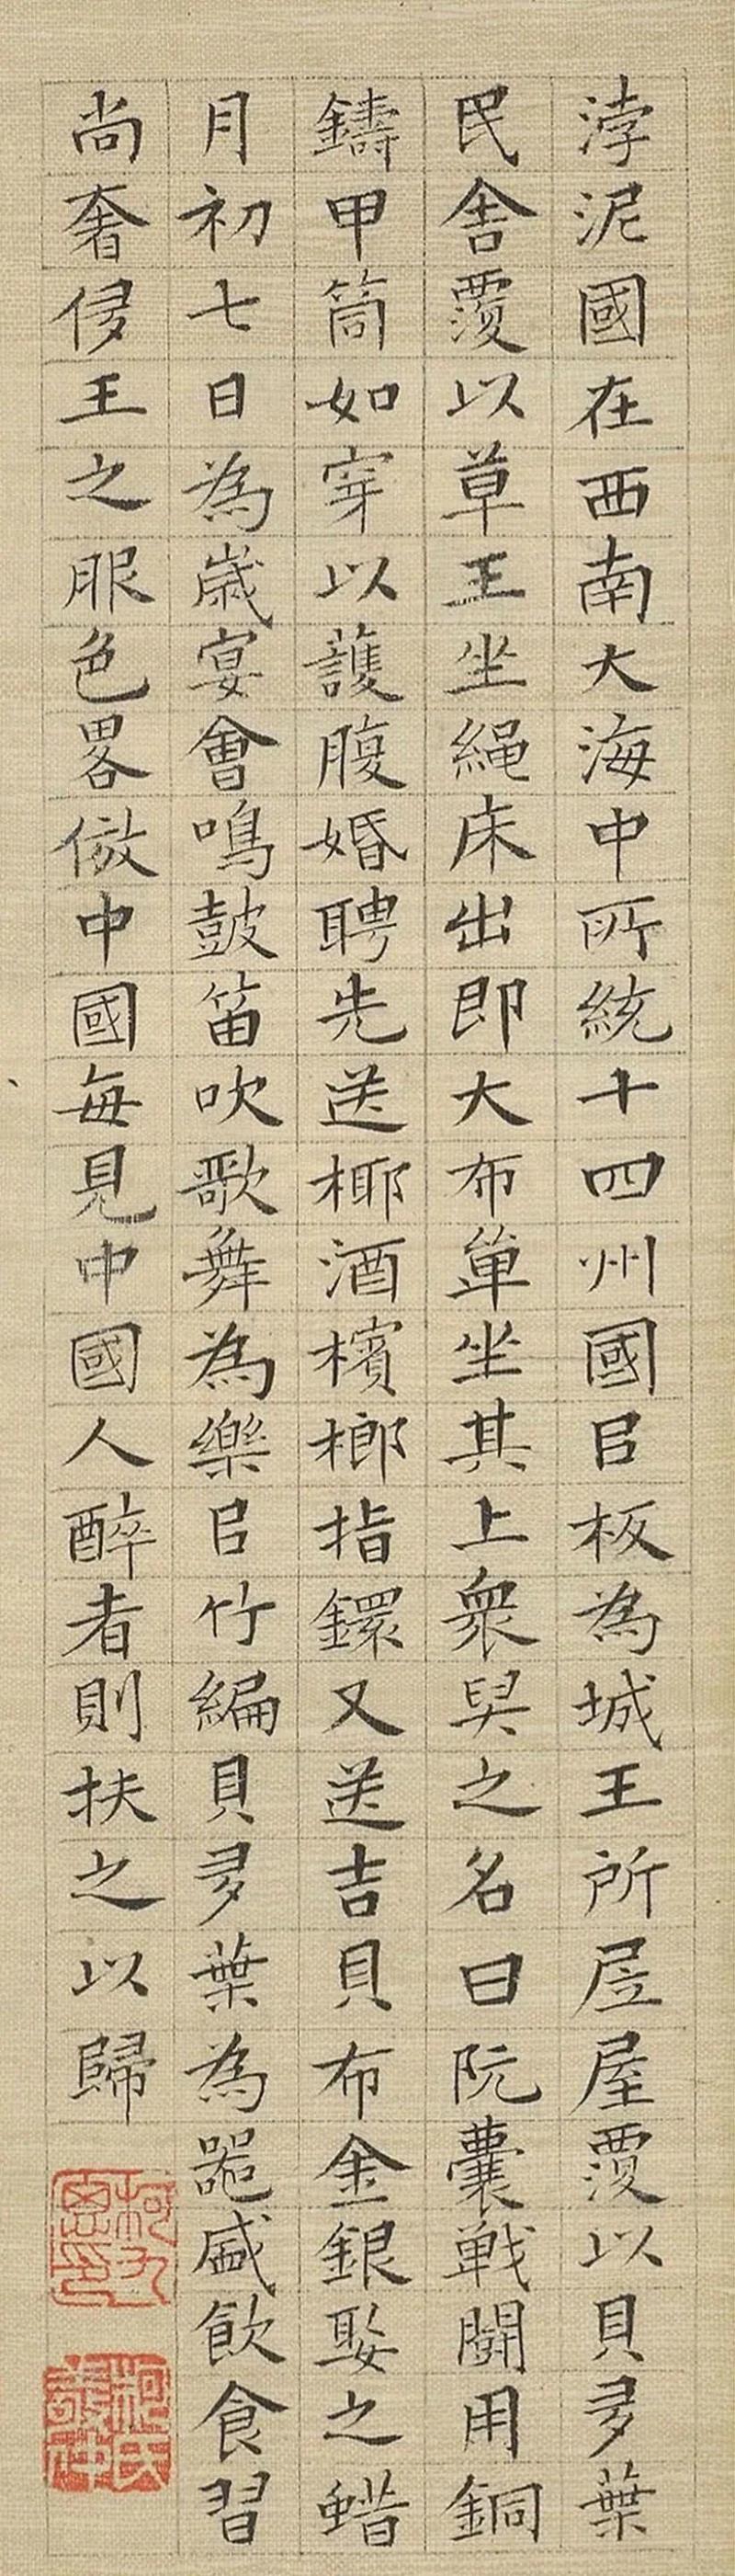 浡泥國在西南大海中所統十四州國㠯板為城王所居屋覆以貝多葉
民舍覆以草王坐繩床出即大布单坐其上衆舁之名曰阮囊戦鬪用銅
鑄甲筒如穿以護腹婚聘先送椰酒檳榔指鐶又送吉貝布金銀娶之蜡
月初七日為歲宴會鳴鼓笛吹歌舞為樂㠯竹編貝多葉為器盛飲食習
尚奢侈王之服色畧倣中國每見中國人醉者則扶之以歸
柯九思印
柯氏敬仲